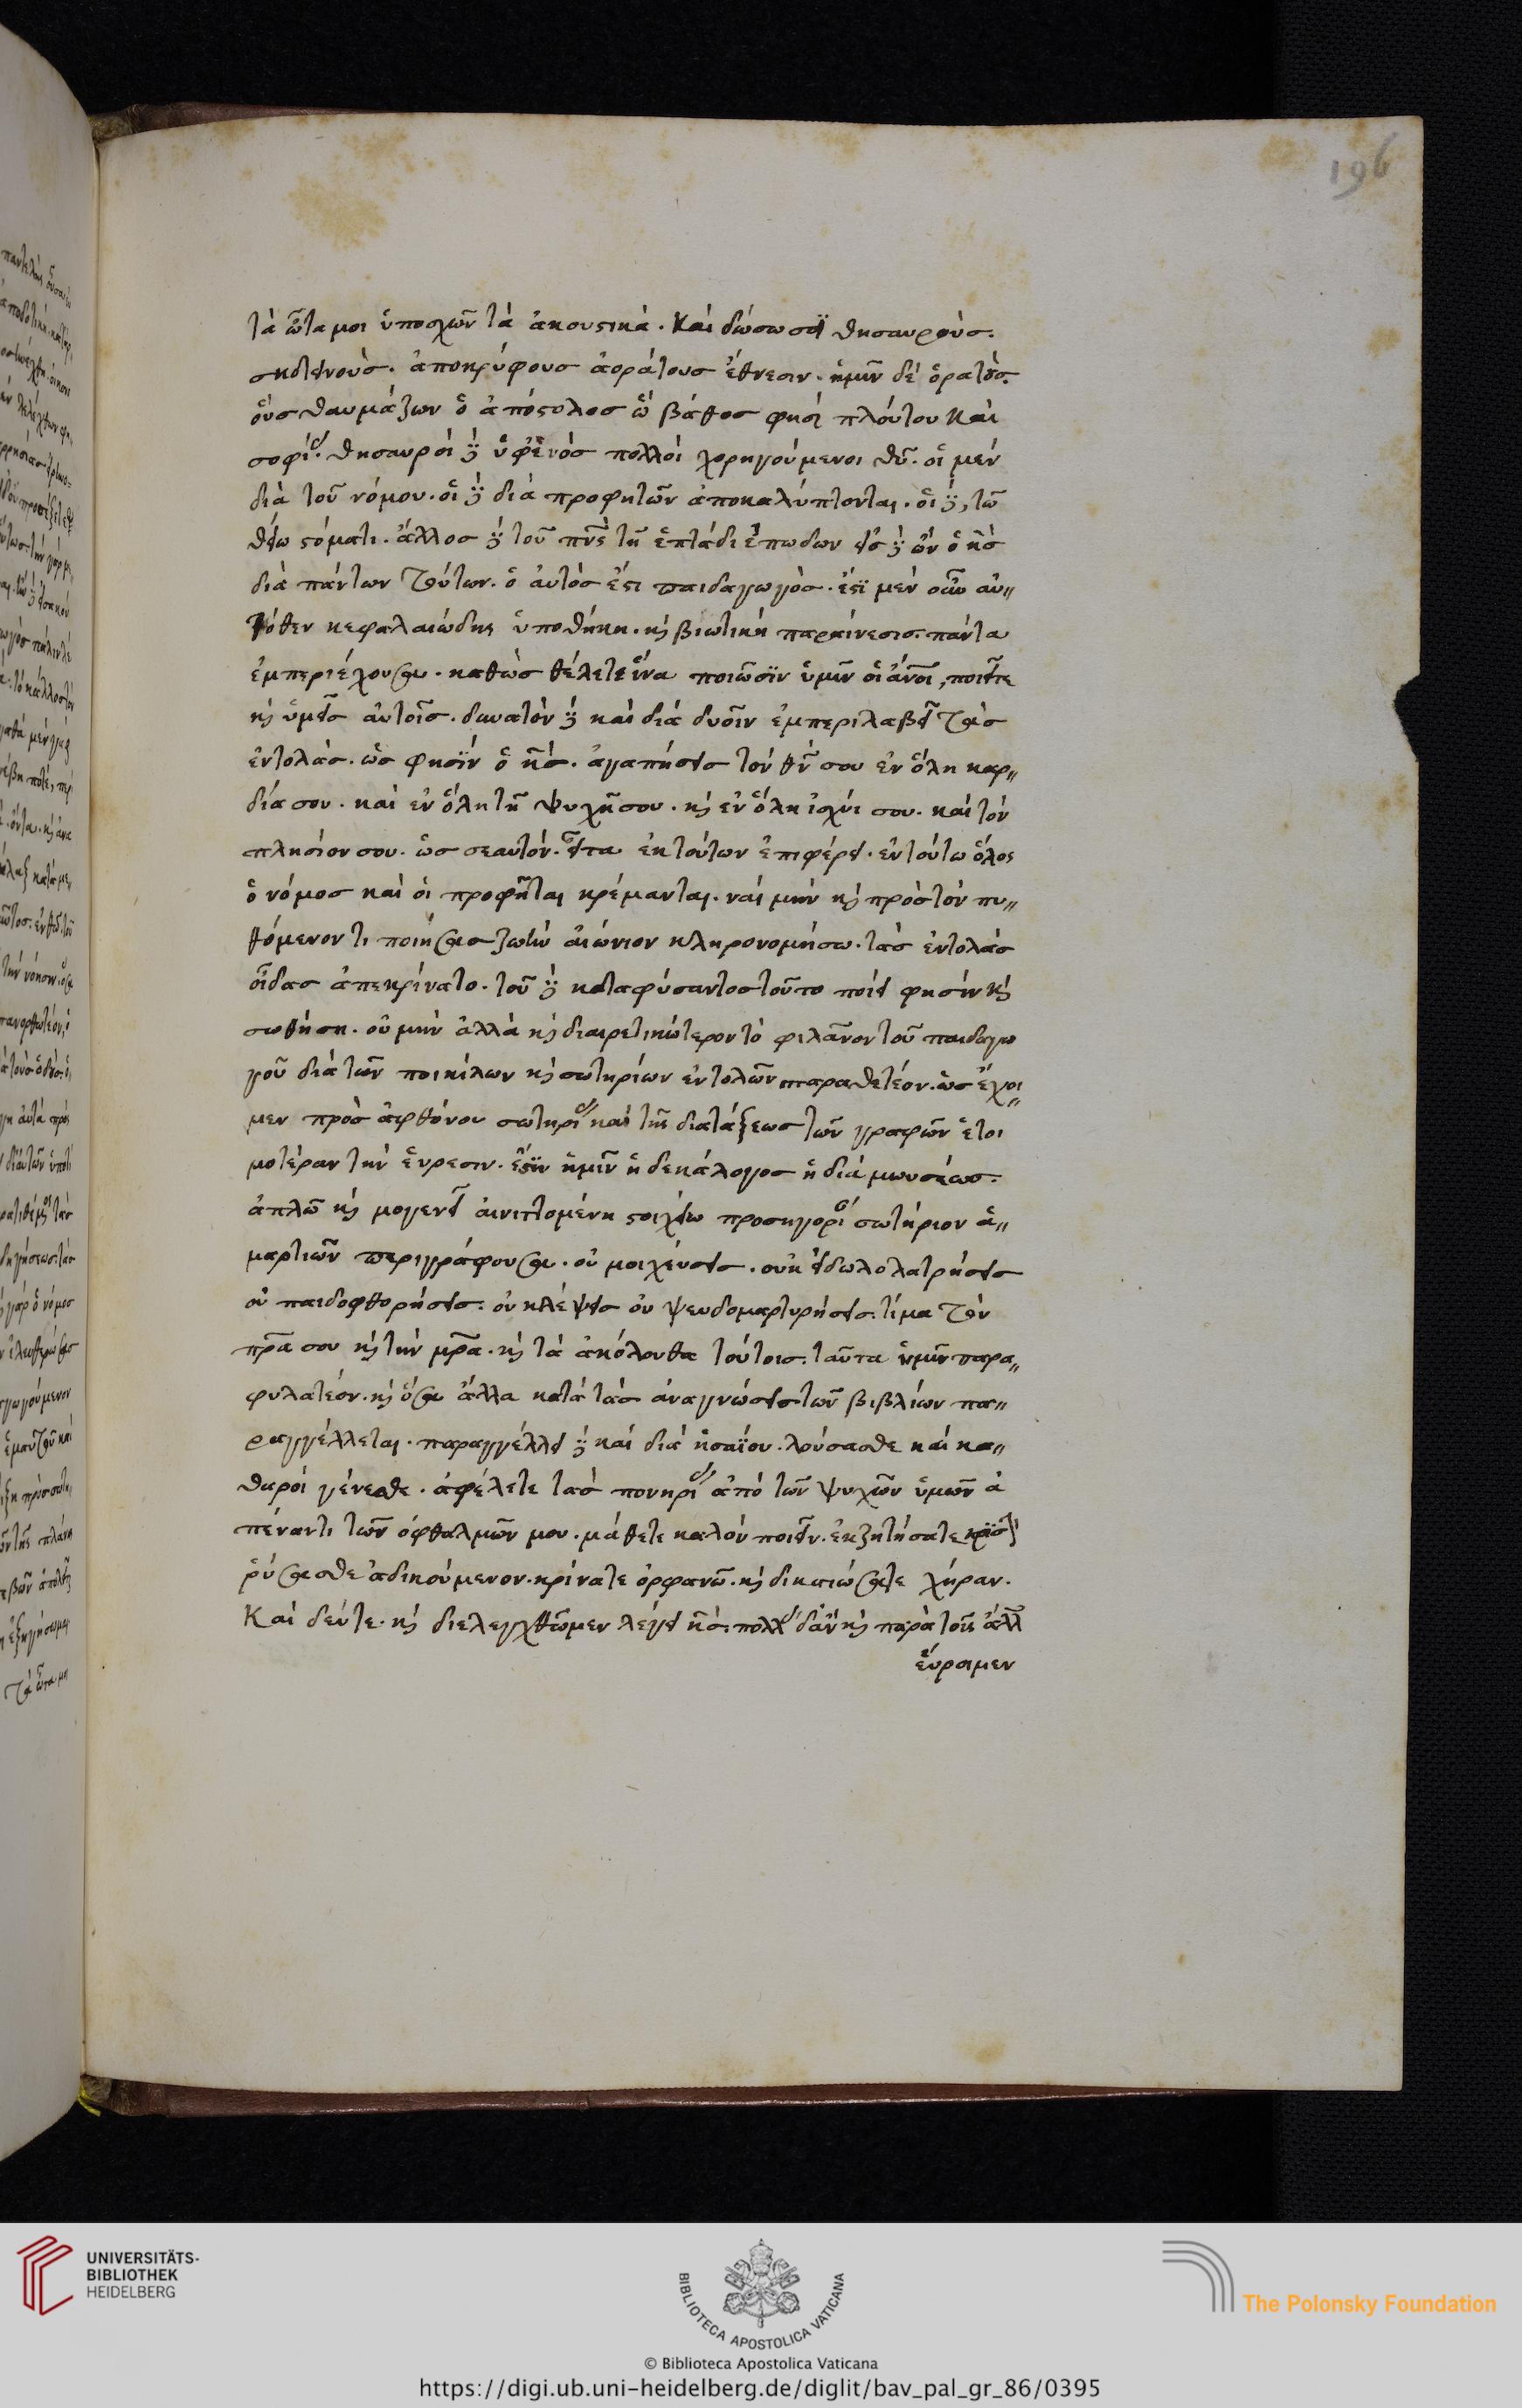 196
τὰ ὦτα μοι ὑποσχὼν τὰ ἀκουστικά. Καὶ δώσω σοϊ θησαυροὺς.
σκοτεινοὺς. ἀποκρύφους ἀοράτους ἔθνεσιν. ἡμῖν δὲ ὁρατοὺς.
οὓς θαυμάζων ὁ ἀπόστολος ὦ βάθος φησὶ πλούτου Καὶ
σοφί. θησαυροὶ δὲ ὑφ' ἑνὸς πολλοὶ χορηγούμενοι θυ. οἱ μὲν
διὰ τοῦ νόμου. οἱ δὲ διὰ προφητῶν ἀποκαλύπτονται. οἱ δὲ, τῶ
θείω στόματι. ἄλλος δὲ τοῦ πνς τῆ ἑπτάδι ἐπωδων εἷς δὲ ὢν ὁ κς
διὰ πάντων τούτων. ὁ αὐτὸς ἐστι παιδαγωγὸς. ἐστϊ μὲν οὖν αὐ"
τόθεν κεφαλαιώδης ὑποθήκη. κὶ βιωτικὴ παραίνεσις. πάντα
ἐμπεριέχουσα. καθὼς θέλετε ἵνα ποιῶσϊν ὑμῖν οἱ ἄνοι, ποιεῖτε
κὶ ὑμεῖς αὐτοῖς. δυνατὸν δὲ καὶ διὰ δυοῖν ἐμπεριλαβεῖ τὰς
ἐντολὰς. ὥς φησϊν ὁ κς. ἀγαπήσεις τὸν θν σου ἐν ὅλη καρ"
δία σου. καὶ ἐν ὅλη τῆ ψυχῆ σου. κὶ ἐν ὅλη ἰσχύι σου. καὶ τὸν
πλησίον σου. ὡς σεαυτόν. εἶτα ἐκ τούτων ἐπιφέρει. ἐν τούτω ὅλος
ὁ νόμος καὶ οἱ προφῆται κρέμανται. ναὶ μὴν κὶ πρὸς τὸν πυ"
θόμενον τι ποιήσας ζωὴν αἰώνιον κληρονομήσω. τὰς ἐντολὰς
οἶδας ἀπεκρίνατο. τοῦ δὲ καταφύσαντος τοῦτο ποίει φησὶν κὶ
σωθήση. οὐ μὴν ἀλλὰ κὶ διαιρετικώτερον τὸ φιλᾶνον τοῦ παιδαγω
γοῦ διὰ τῶν ποικίλων κὶ σωτηρίων ἐντολῶν παραθετέον. ὡς ἔχοι
μεν πρὸς ἀφθόνου σωτηρί καὶ τῆς διατάξεως τῶν γραφῶν ἑτοι
μοτέραν τὴν εὕρεσιν. ἔστϊν ἡμῖν ἡ δεκάλογος ἡ διὰ μωυσέως.
ἁπλῶ κὶ μογενεῖ αἰνιττομένη στοιχείω προσηγορί σωτήριον ἁ"
μαρτιῶν περιγράφουσα. οὐ μοιχεύσεις. οὐκ εἰδωλολατρήσεις
οὐ παιδοφθορήσεις. οὐ κλέψεις οὐ ψευδομαρτυρήσεις. τίμα τὸν
πρα σου κὶ τὴν μρα. κὶ τὰ ἀκόλουθα τούτοις. ταῦτα ἡμῖν παρα"
φυλατέον. κὶ ὅσα ἄλλα κατὰ τὰς ἀναγνώσεις τῶν βιβλίων πα"
ραγγέλλεται. παραγγέλλει δὲ καὶ διὰ ἡσαΐου. λούσασθε καὶ κα"
θαροὶ γένεσθε. ἀφέλετε τὰς πονηρί ἀπὸ τῶν ψυχῶν ὑμῶν ἀ
πέναντι τῶν ὀφθαλμῶν μου. μάθετε καλὸν ποιεῖν. ἐκζητήσατε κρϊσ
ῥύσασθε ἀδικούμενον. κρίνατε ὀρφανῶ. κὶ δικαιώσατε χήραν.
Καὶ δεύτε. κὶ διελεγχθῶμεν λέγει κς. πολλ δ' ἂν κὶ παρὰ τοῖς ἄλλ
εὕροιμεν
UNIVERSITÄTS-
BIBLIOTHEK
HEIDELBERG
BIBLIOTECA APOSTOLICA VATICANA
The Polonsky Foundation
© Biblioteca Apostolica Vaticana
https://digi.ub.uni-heidelberg.de/diglit/bav_pal_gr_86/0395